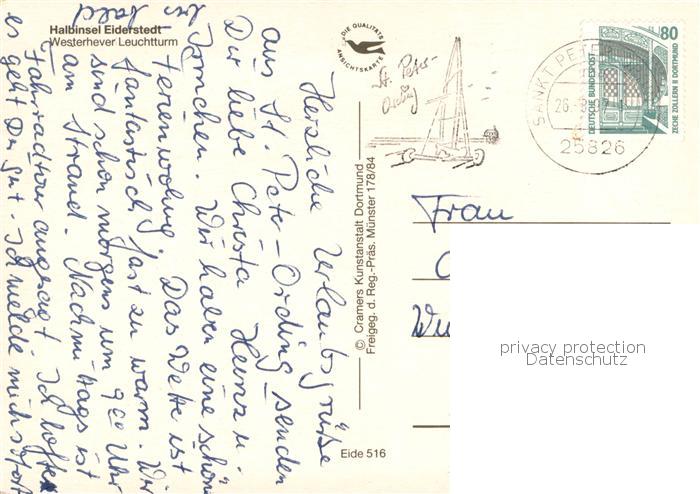 Halbinsel Eiderstedt
Westerhever Leuchtturm
Herzliche Urlaubsgrüße
aus St. Peter-Ording senden
Dir liebe Christa Heinz u.
Jörnchen. Wir haben eine schöne
Ferienwohng. Das Wetter ist
fantastisch, fast zu warm. Wir
sind schon morgens um 9°° Uhr
am Strand. Nachmittags ist
Fahrradtour angesagt. Ich hoffe
es geht Dir gut. Ich melde mich sofort
DIE QUALITÄTS
ANSICHTSKARTE
St. Peter-
Ording
SANKT PETER
25826
80
DEUTSCHE BUNDESPOST
ZECHE ZOLLERN II DORTMUND
© Cramers Kunstanstalt Dortmund
Freigeg. d. Reg.-Präs. Münster 178/84
Frau
Eide 516
privacy protection
Datenschutz